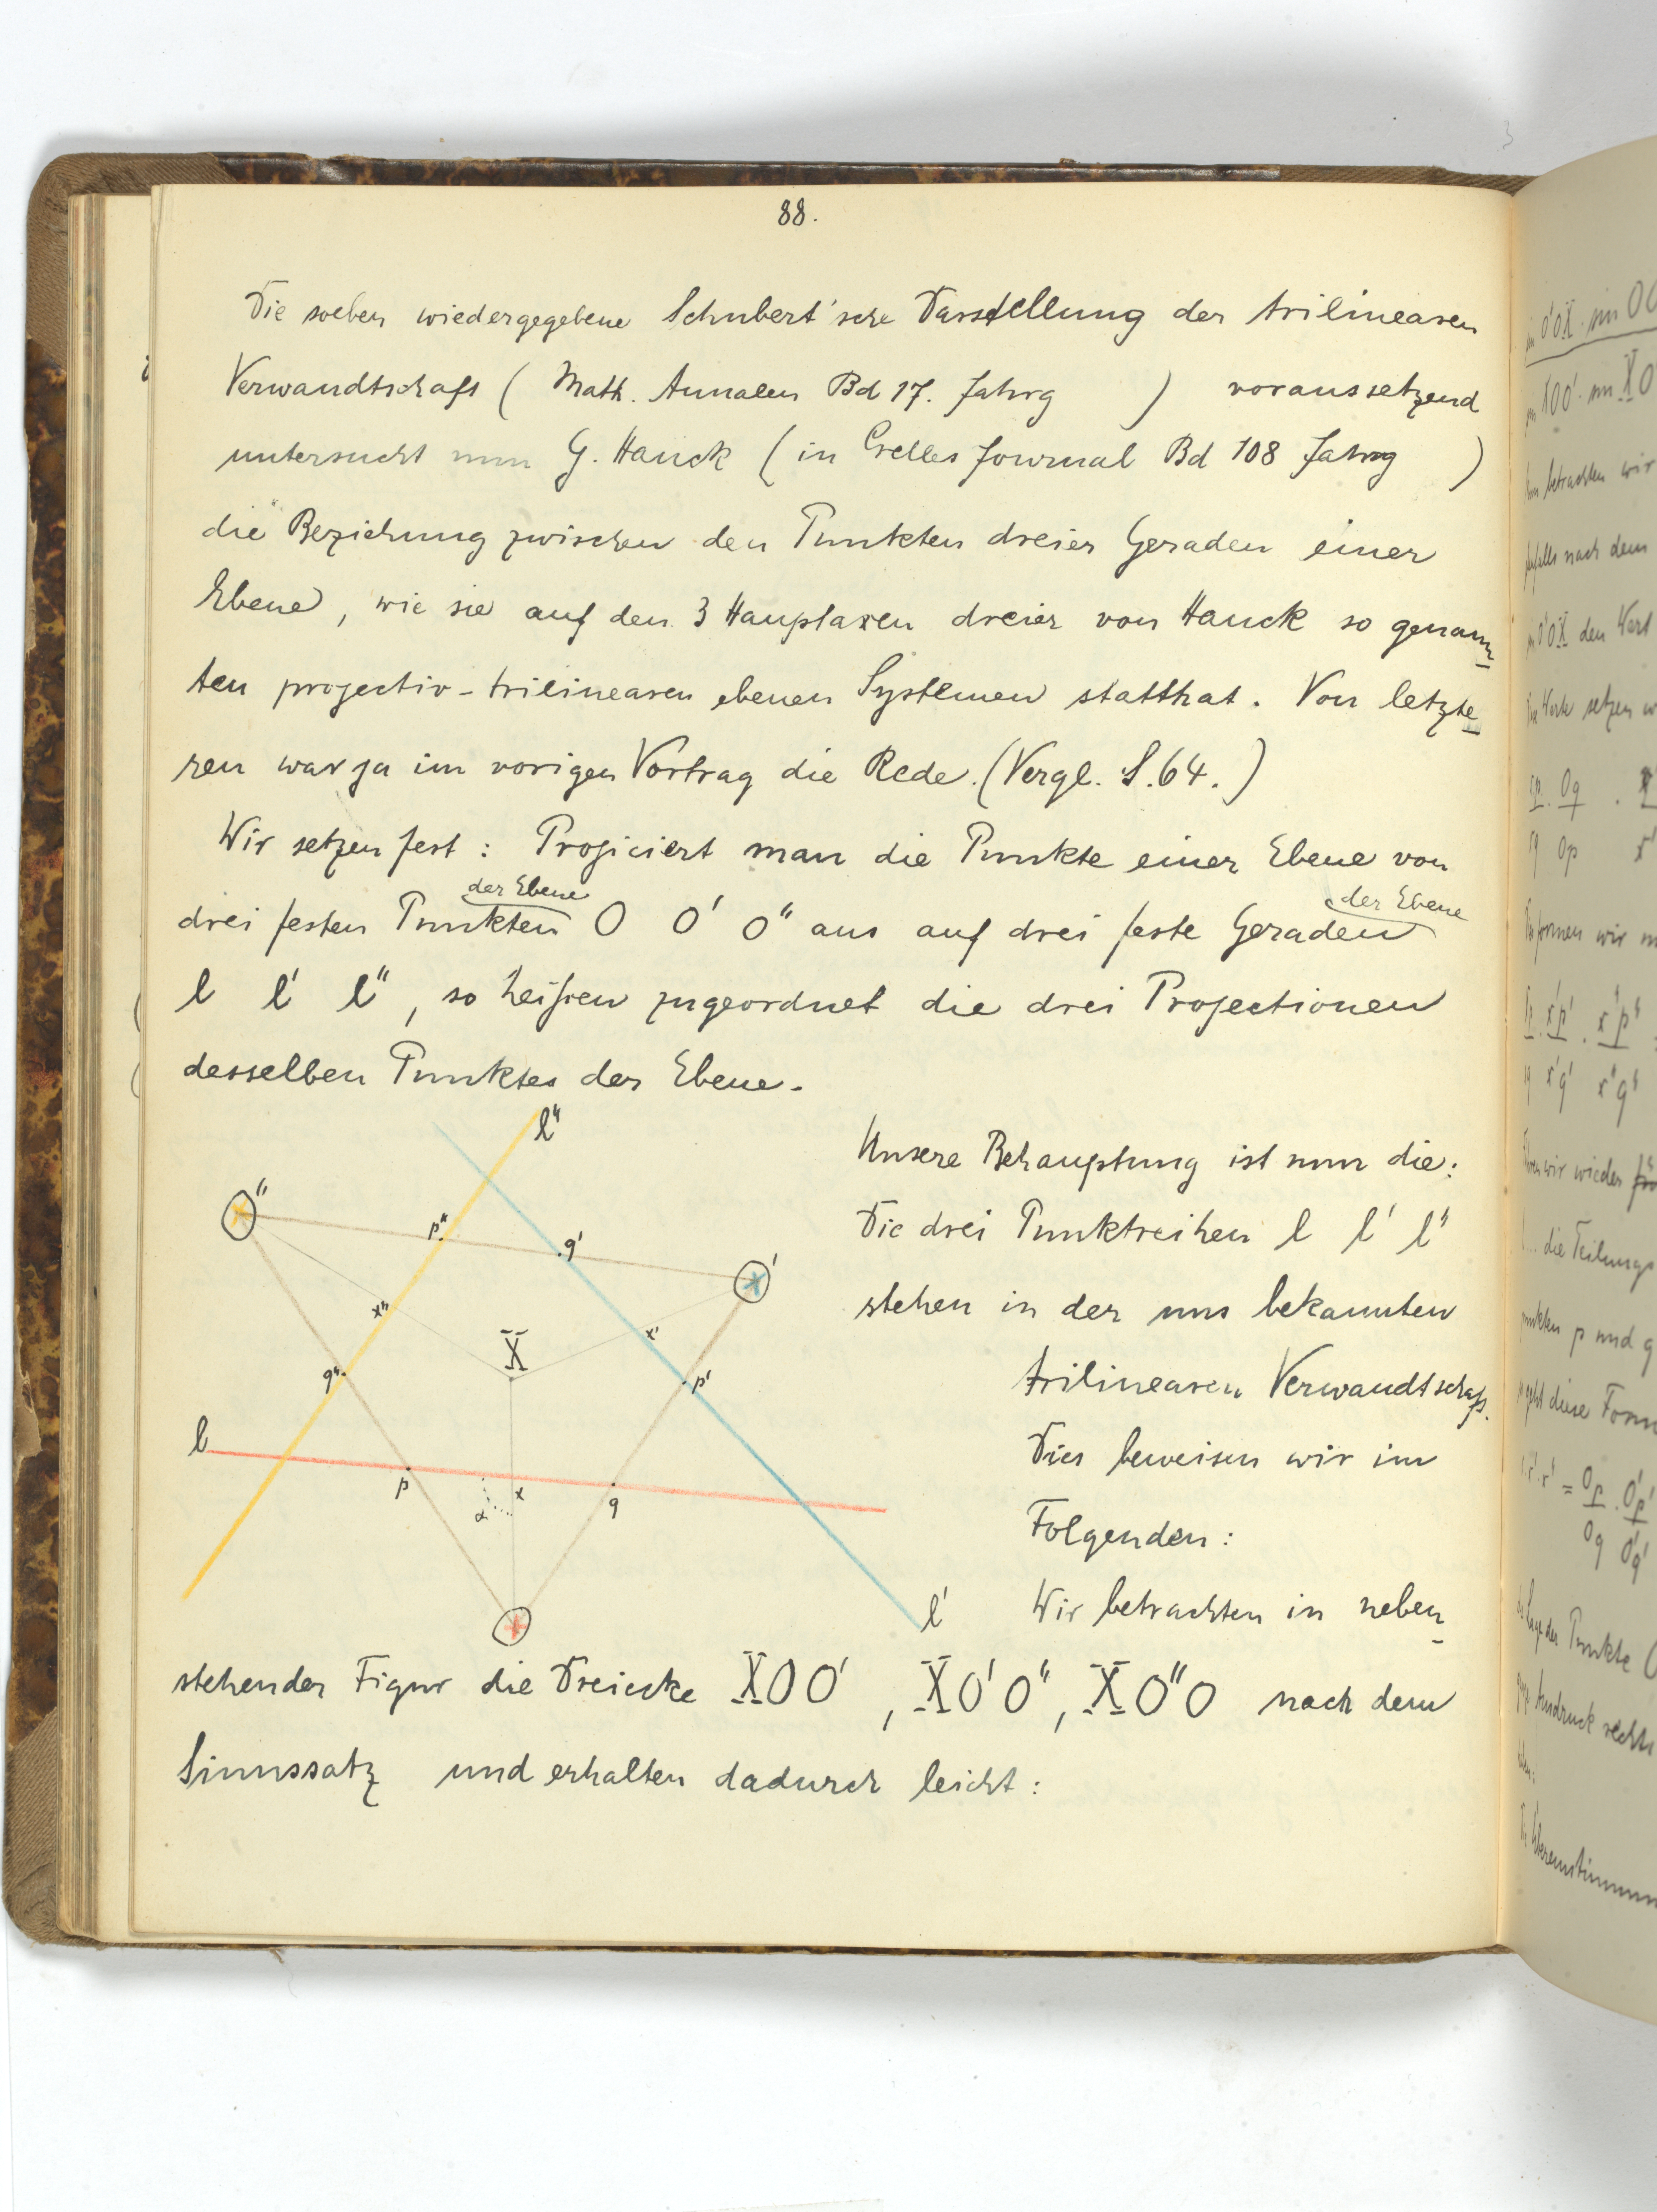 88.
Die soeben wiedergegebene Schubert'sche Darstellung der trilinearen
Verwandtschaft ( Math. Annalen Bd 17. Jahrg ) voraussetzend
untersucht nun G. Hauck ( in Crelles Journal Bd 108 Jahrg )
die Beziehung zwischen den Punkten dreier Geraden einer
Ebene, wie sie auf den 3 Hauptaxen dreier von Hauck so genann-
ten projectiv-trilinearen ebenen Systemen statthat. Von letzte-
ren war ja im vorigen Vortrag die Rede. (Vergl. S. 64.)
Wir setzen fest: Projiciert man die Punkte einer Ebene von
der Ebene der Ebene
drei festen Punkten O O' O" aus auf drei feste Geraden
l l' l", so heißen zugeordnet die drei Projectionen
desselben Punktes der Ebene.
l"
O"
p"
q'
O'
x"
X
x'
q"
p'
l
p
α
x
q
O
l'
Unsere Behauptung ist nun die:
Die drei Punktreihen l l' l"
stehen in der uns bekannten
trilinearen Verwandtschaft.
Dies beweisen wir im
Folgenden:
Wir betrachten in neben-
stehender Figur die Dreiecke XOO', XO'O", XO"O nach dem
Sinussatz und erhalten dadurch leicht:
betrachten wir
nach dem
den Wert
setzen
formen wir
wir wieder
die Teilungs
p und q
diese Form
der Punkte
Ausdruck rechts